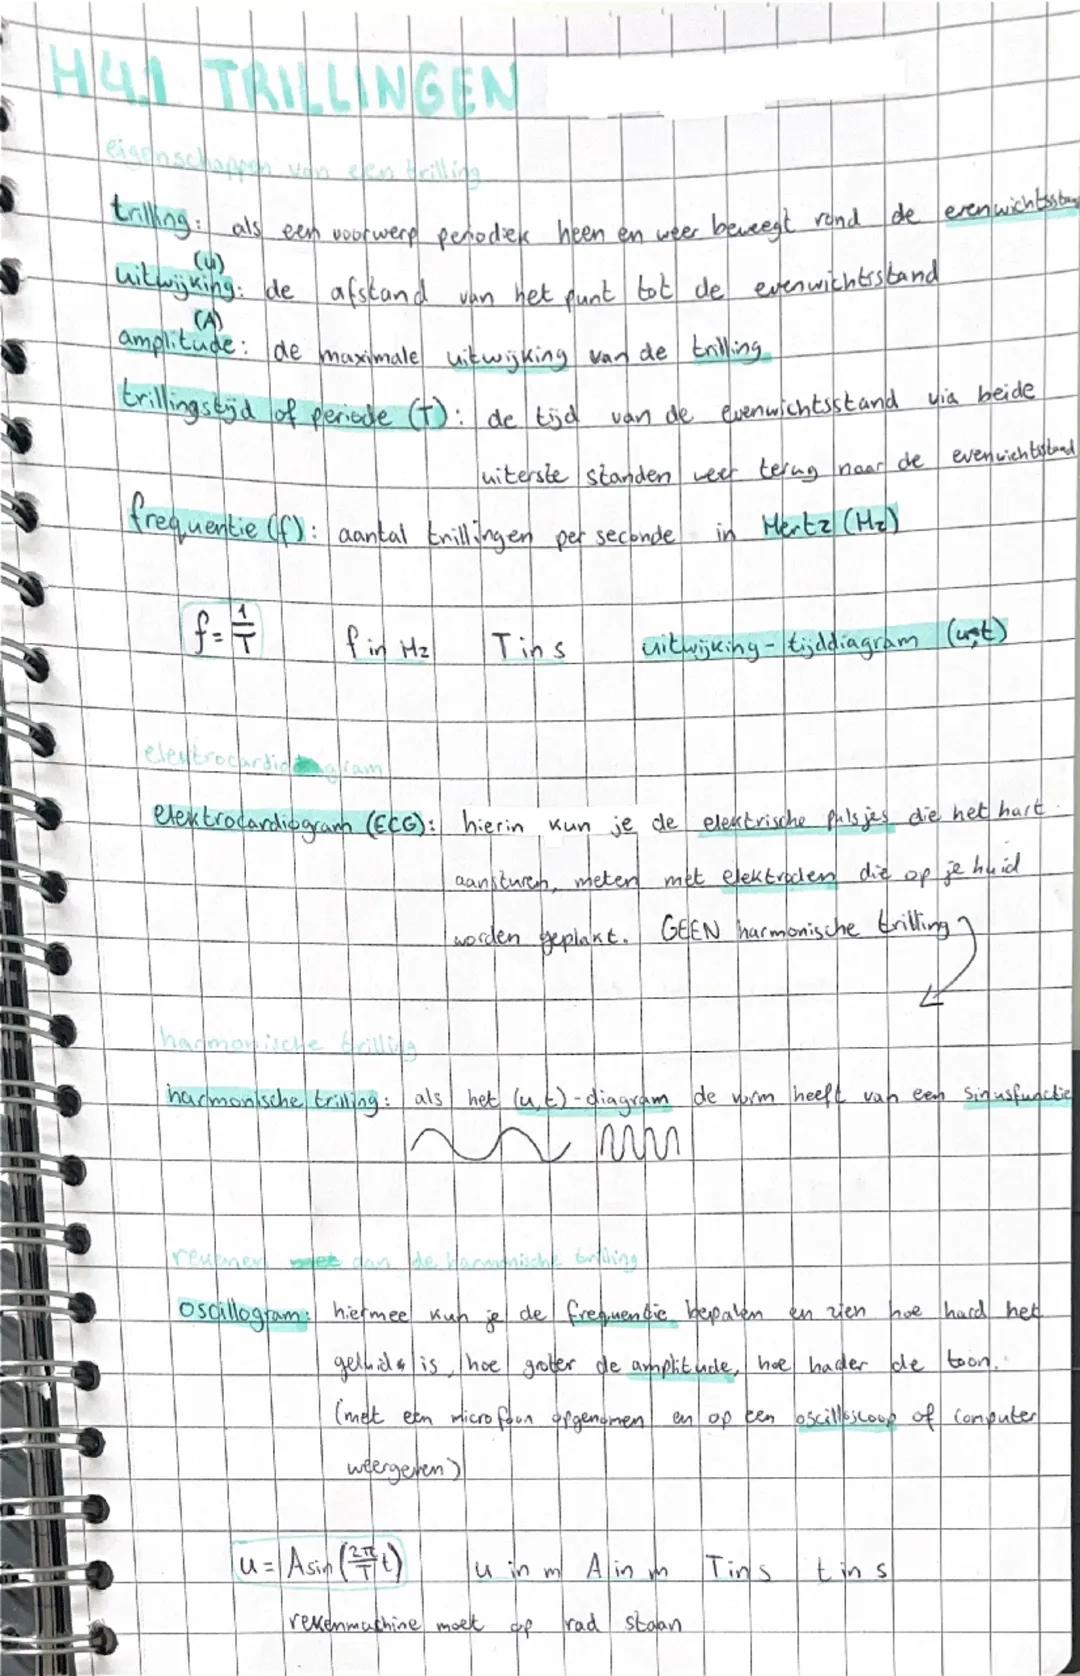 H4.1 TRILLINGEN
eigenschappen van een trilling
trilling: als een voorwerp periodiek heen en weer beweegt rond de evenwichtsstand
(u)
uitwijking: de afstand van het punt tot de evenwichtsstand
(A)
amplitude: de maximale uitwijking van de trilling
trillingstijd of periode (T): de tijd van de evenwichtsstand via beide
uiterste standen weer terug naar de evenwichtsstand
frequentie (f): aantal trillingen per seconde in Hertz (Hz)
f = 1/T f in Hz T in s uitwijking-tijddiagram (u,t)
elektrocardiogram
elektrocardiogram (ECG): hierin kun je de elektrische pulsjes die het hart
aansturen, meten met elektroden die op je huid
worden geplakt. GEEN harmonische trilling
harmonische trilling
harmonische trilling: als het (u,t)-diagram de vorm heeft van een sinusfunctie
rekenen aan de harmonische trilling
oscillogram: hiermee kun je de frequentie bepalen en zien hoe hard het
geluid is, hoe groter de amplitude, hoe harder de toon.
(met een microfoon opgenomen en op een oscilloscoop of computer
weergeven)
u = A sin (2π/T t) u in m A in m T in s t in s
rekenmachine moet op rad staan